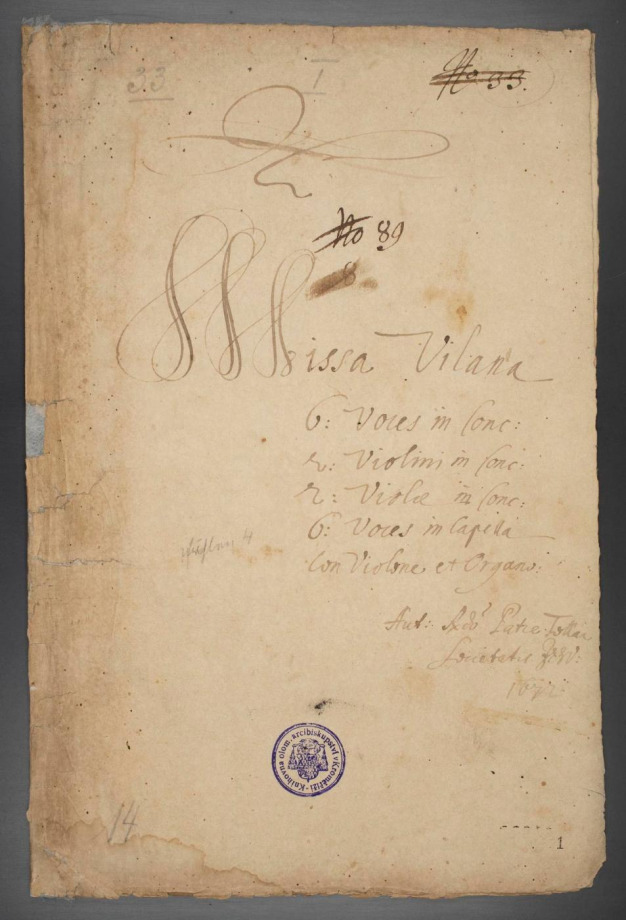 33
1
No 33.
No 89
8
Missa Vilana
6: Voces in Conc:
2: Violini in Conc:
2: Violæ in Conc:
6: Voces in Capella
Con Violone et Organo:
Aut: Rdo Patre
Societatis Jesu:
Knihovna olom. arcibiskupství v Kroměříži
14
1